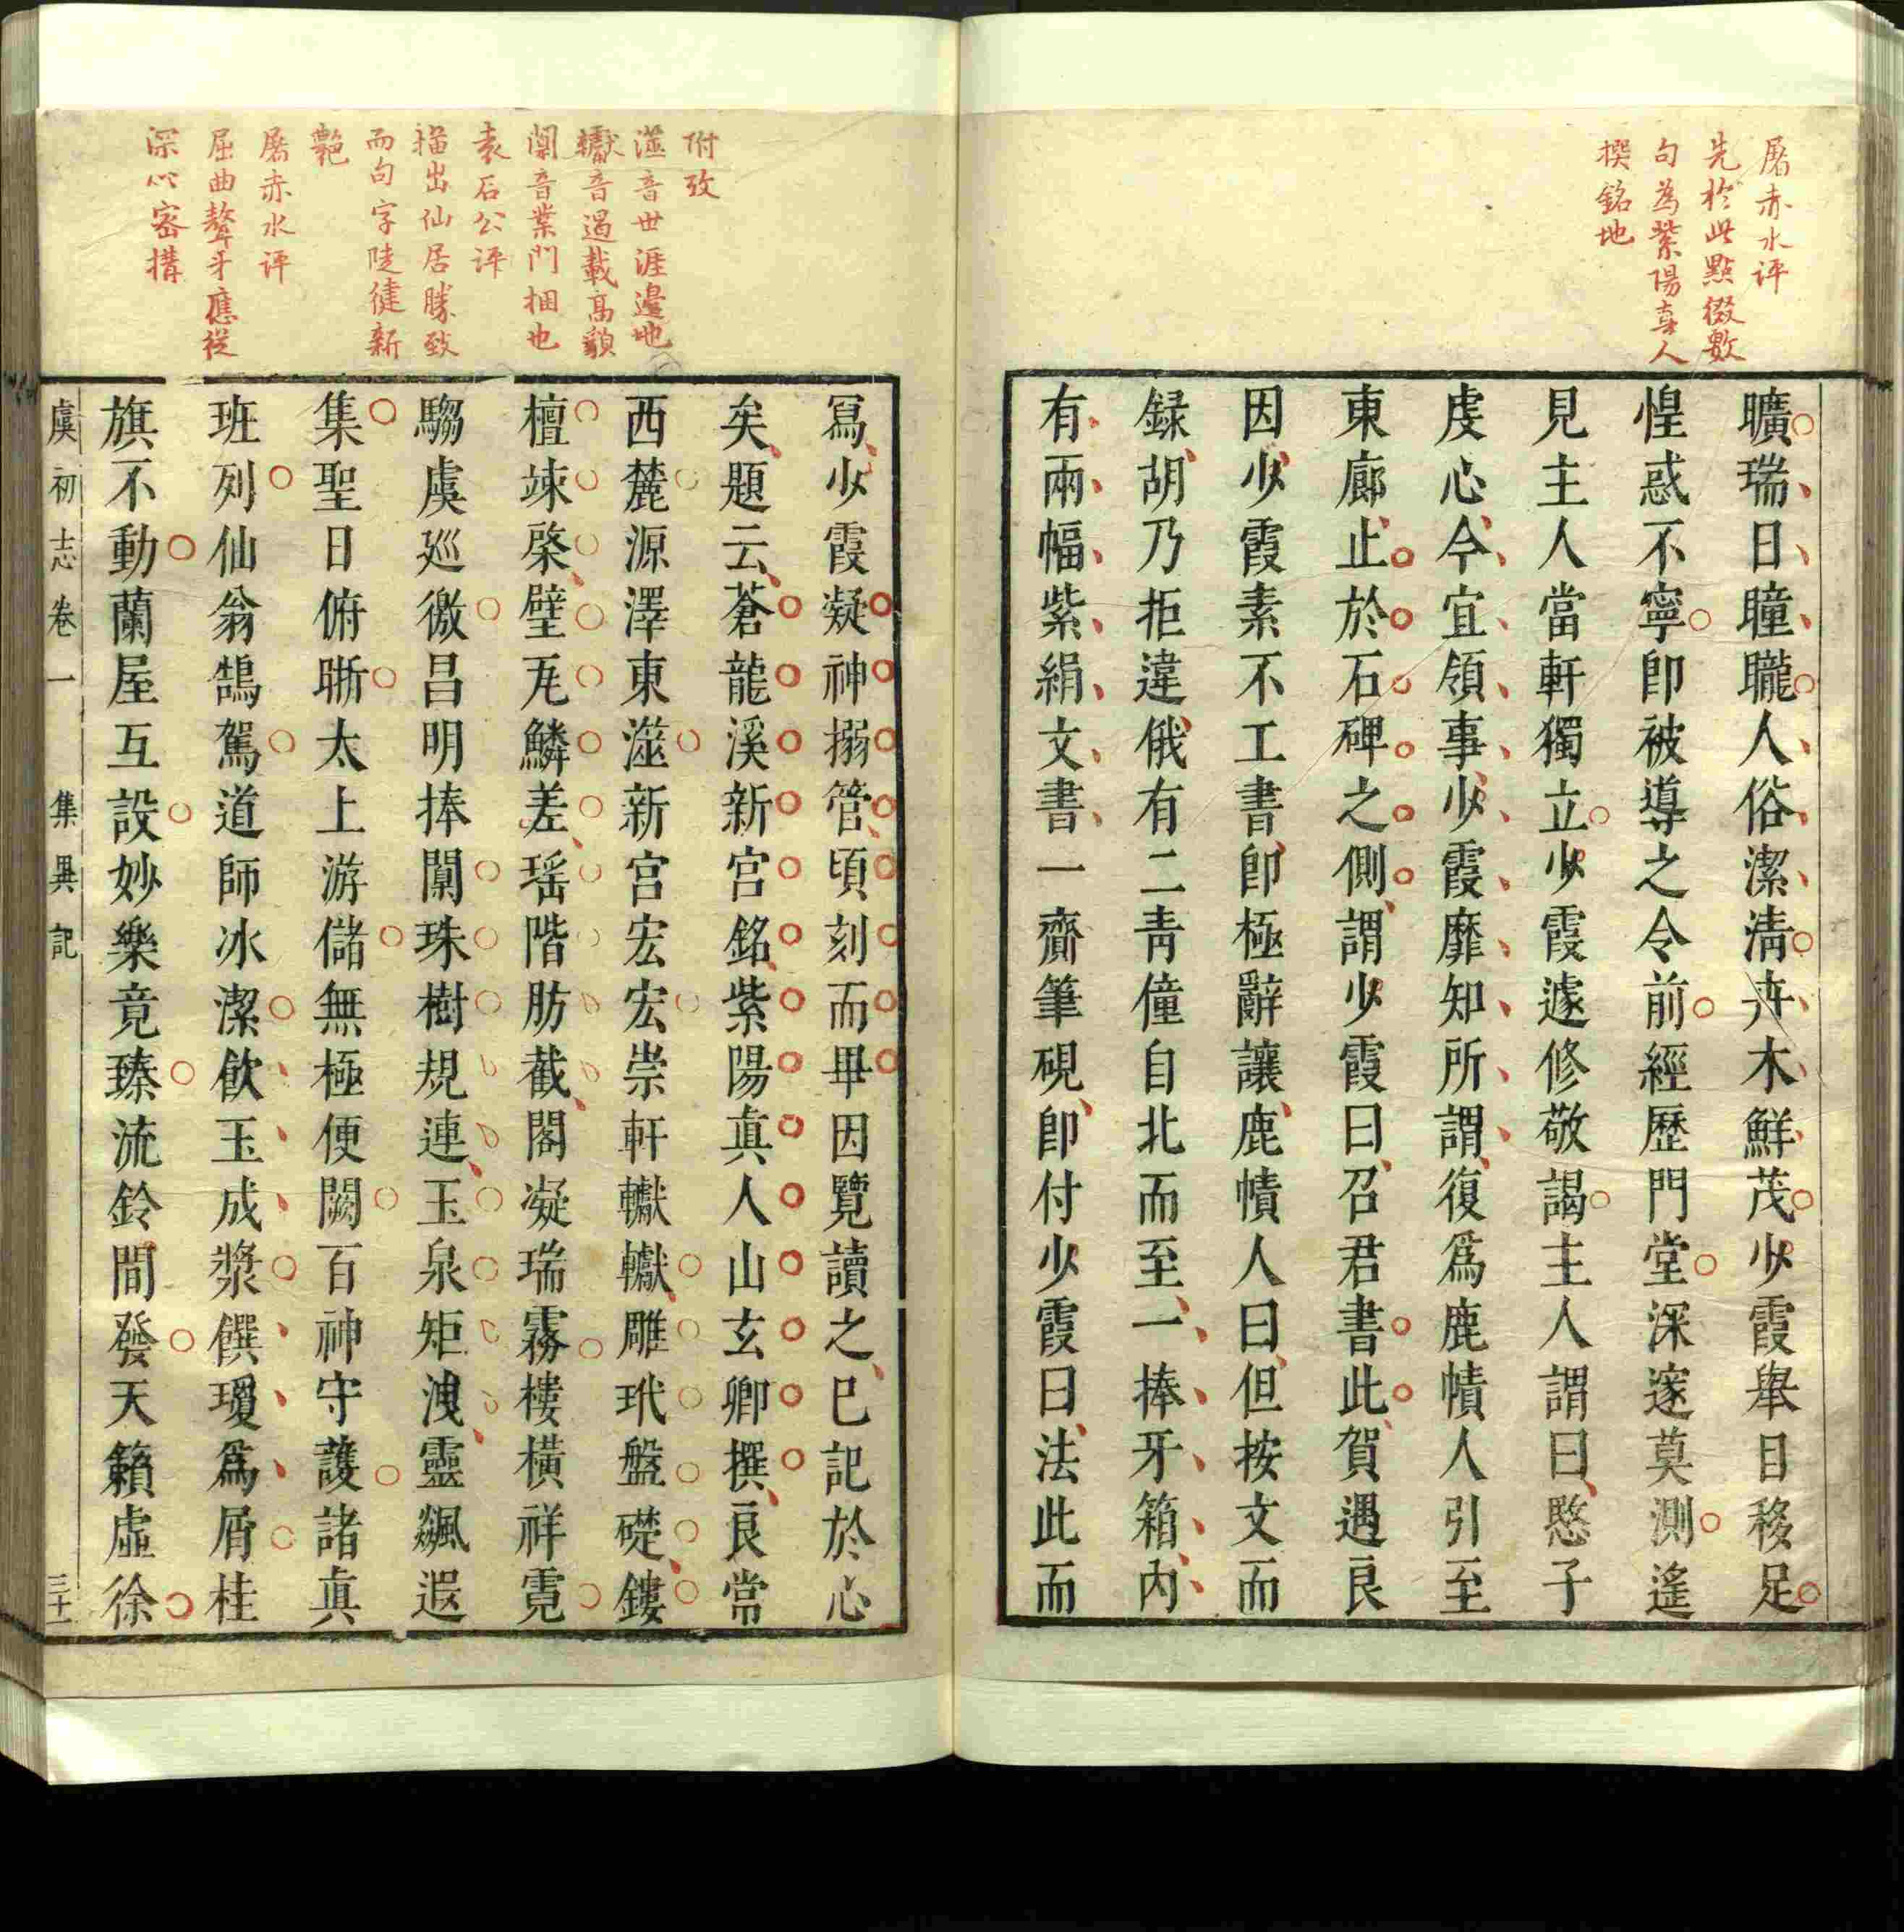 屠赤水評
先於此點僝數
句為紫陽真人
撰銘地
曠瑞日曈曨人俗潔淸卉木鮮茂少霞舉目移足
惶惑不寧卽被導之令前經歷門堂深邃莫測遙
見主人當軒獨立少霞遽修敬謁主人謂曰愍子
虔心今宜領事少霞靡知所謂復爲鹿幘人引至
東廊止於石碑之側謂少霞曰召君書此賀遇良
因少霞素不工書卽極辭讓鹿幘人曰但按文而
録胡乃拒違俄有二靑僮自北而至一捧牙箱内
有兩幅紫絹文書一齎筆硯卽付少霞曰法此而
附攷
澨音世涯邊地
轥音遏載高貌
闑音業門捆也
袁石公評
描出仙居勝致
而句字陡健新
艶
屠赤水評
屈曲聱牙應從
深心密搆
寫少霞凝神搦管頃刻而畢因覽讀之已記於心
矣題云蒼龍溪新宫銘紫陽眞人山玄卿撰良常
西麓源澤東澨新宫宏宏崇軒轥轥雕玳盤礎鏤
檀竦棨壁瓦鱗差瑶階肪截閣凝瑞霧樓橫祥霓
騶虞廵徼昌明捧闑珠樹規連玉泉矩洩靈飆遐
集聖日俯晰太上游儲無極便闕百神守護諸眞
班列仙翁鵠駕道師冰潔飮玉成漿饌瓊爲屑桂
旗不動蘭屋互設妙樂竟臻流鈴間發天籟虛徐
虞初志卷一 集異記 三十一